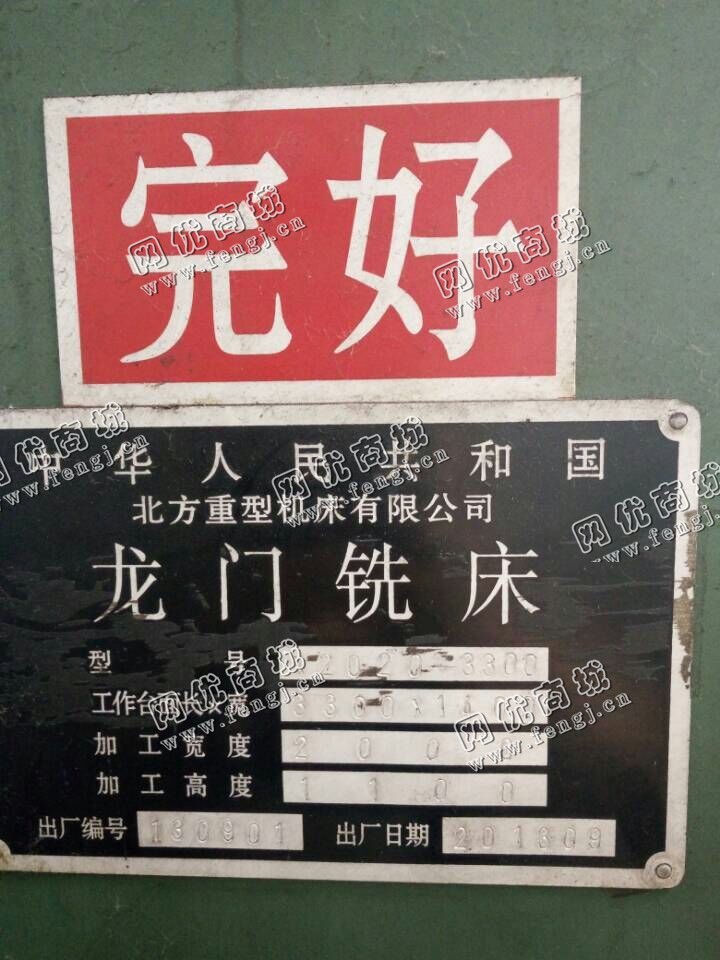 完好
网优商城
www.fengj.cn
网优商城
www.fengj.cn
中华人民共和国
北方重型机床有限公司
龙门铣床
型号 2020-3300
工作台面长×宽 3300×1400
加工宽度 200
加工高度 1100
出厂编号 130901 出厂日期 201309
网优商城
www.fengj.cn
网优商城
www.fengj.cn
网优商城
www.fengj.cn
网优商城
www.fengj.cn